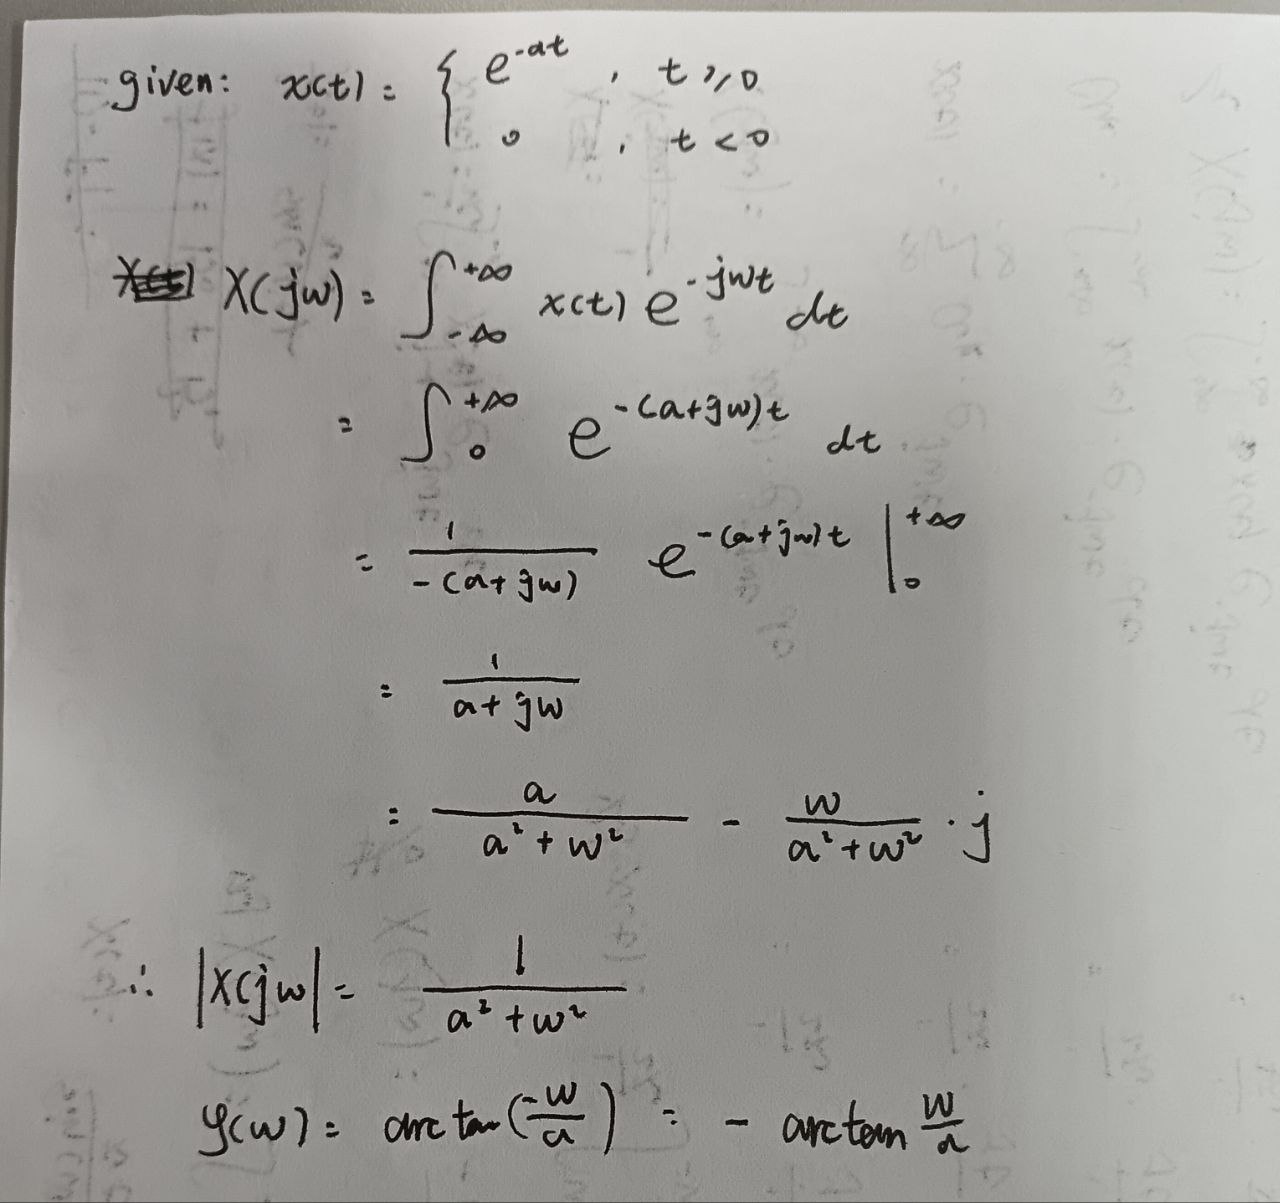 given: x(t) = { e^{-at} , t ≥ 0
0 , t < 0
X(jw) = ∫_{-∞}^{+∞} x(t) e^{-jwt} dt
= ∫_{0}^{+∞} e^{-(a+jw)t} dt
= \frac{1}{-(a+jw)} e^{-(a+jw)t} |_{0}^{+∞}
= \frac{1}{a+jw}
= \frac{a}{a²+w²} - \frac{w}{a²+w²} · j
∴ |X(jw| = \frac{1}{a²+w²}
φ(w) = arctan(\frac{-w}{a}) = - arctan \frac{w}{a}